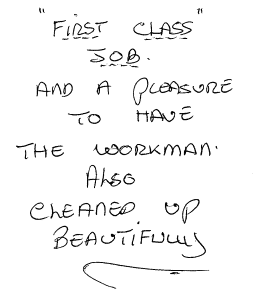 "FIRST CLASS"
JOB.
AND A PLEASURE
TO HAVE
THE WORKMAN.
ALSO
CLEANED UP
BEAUTIFULLY